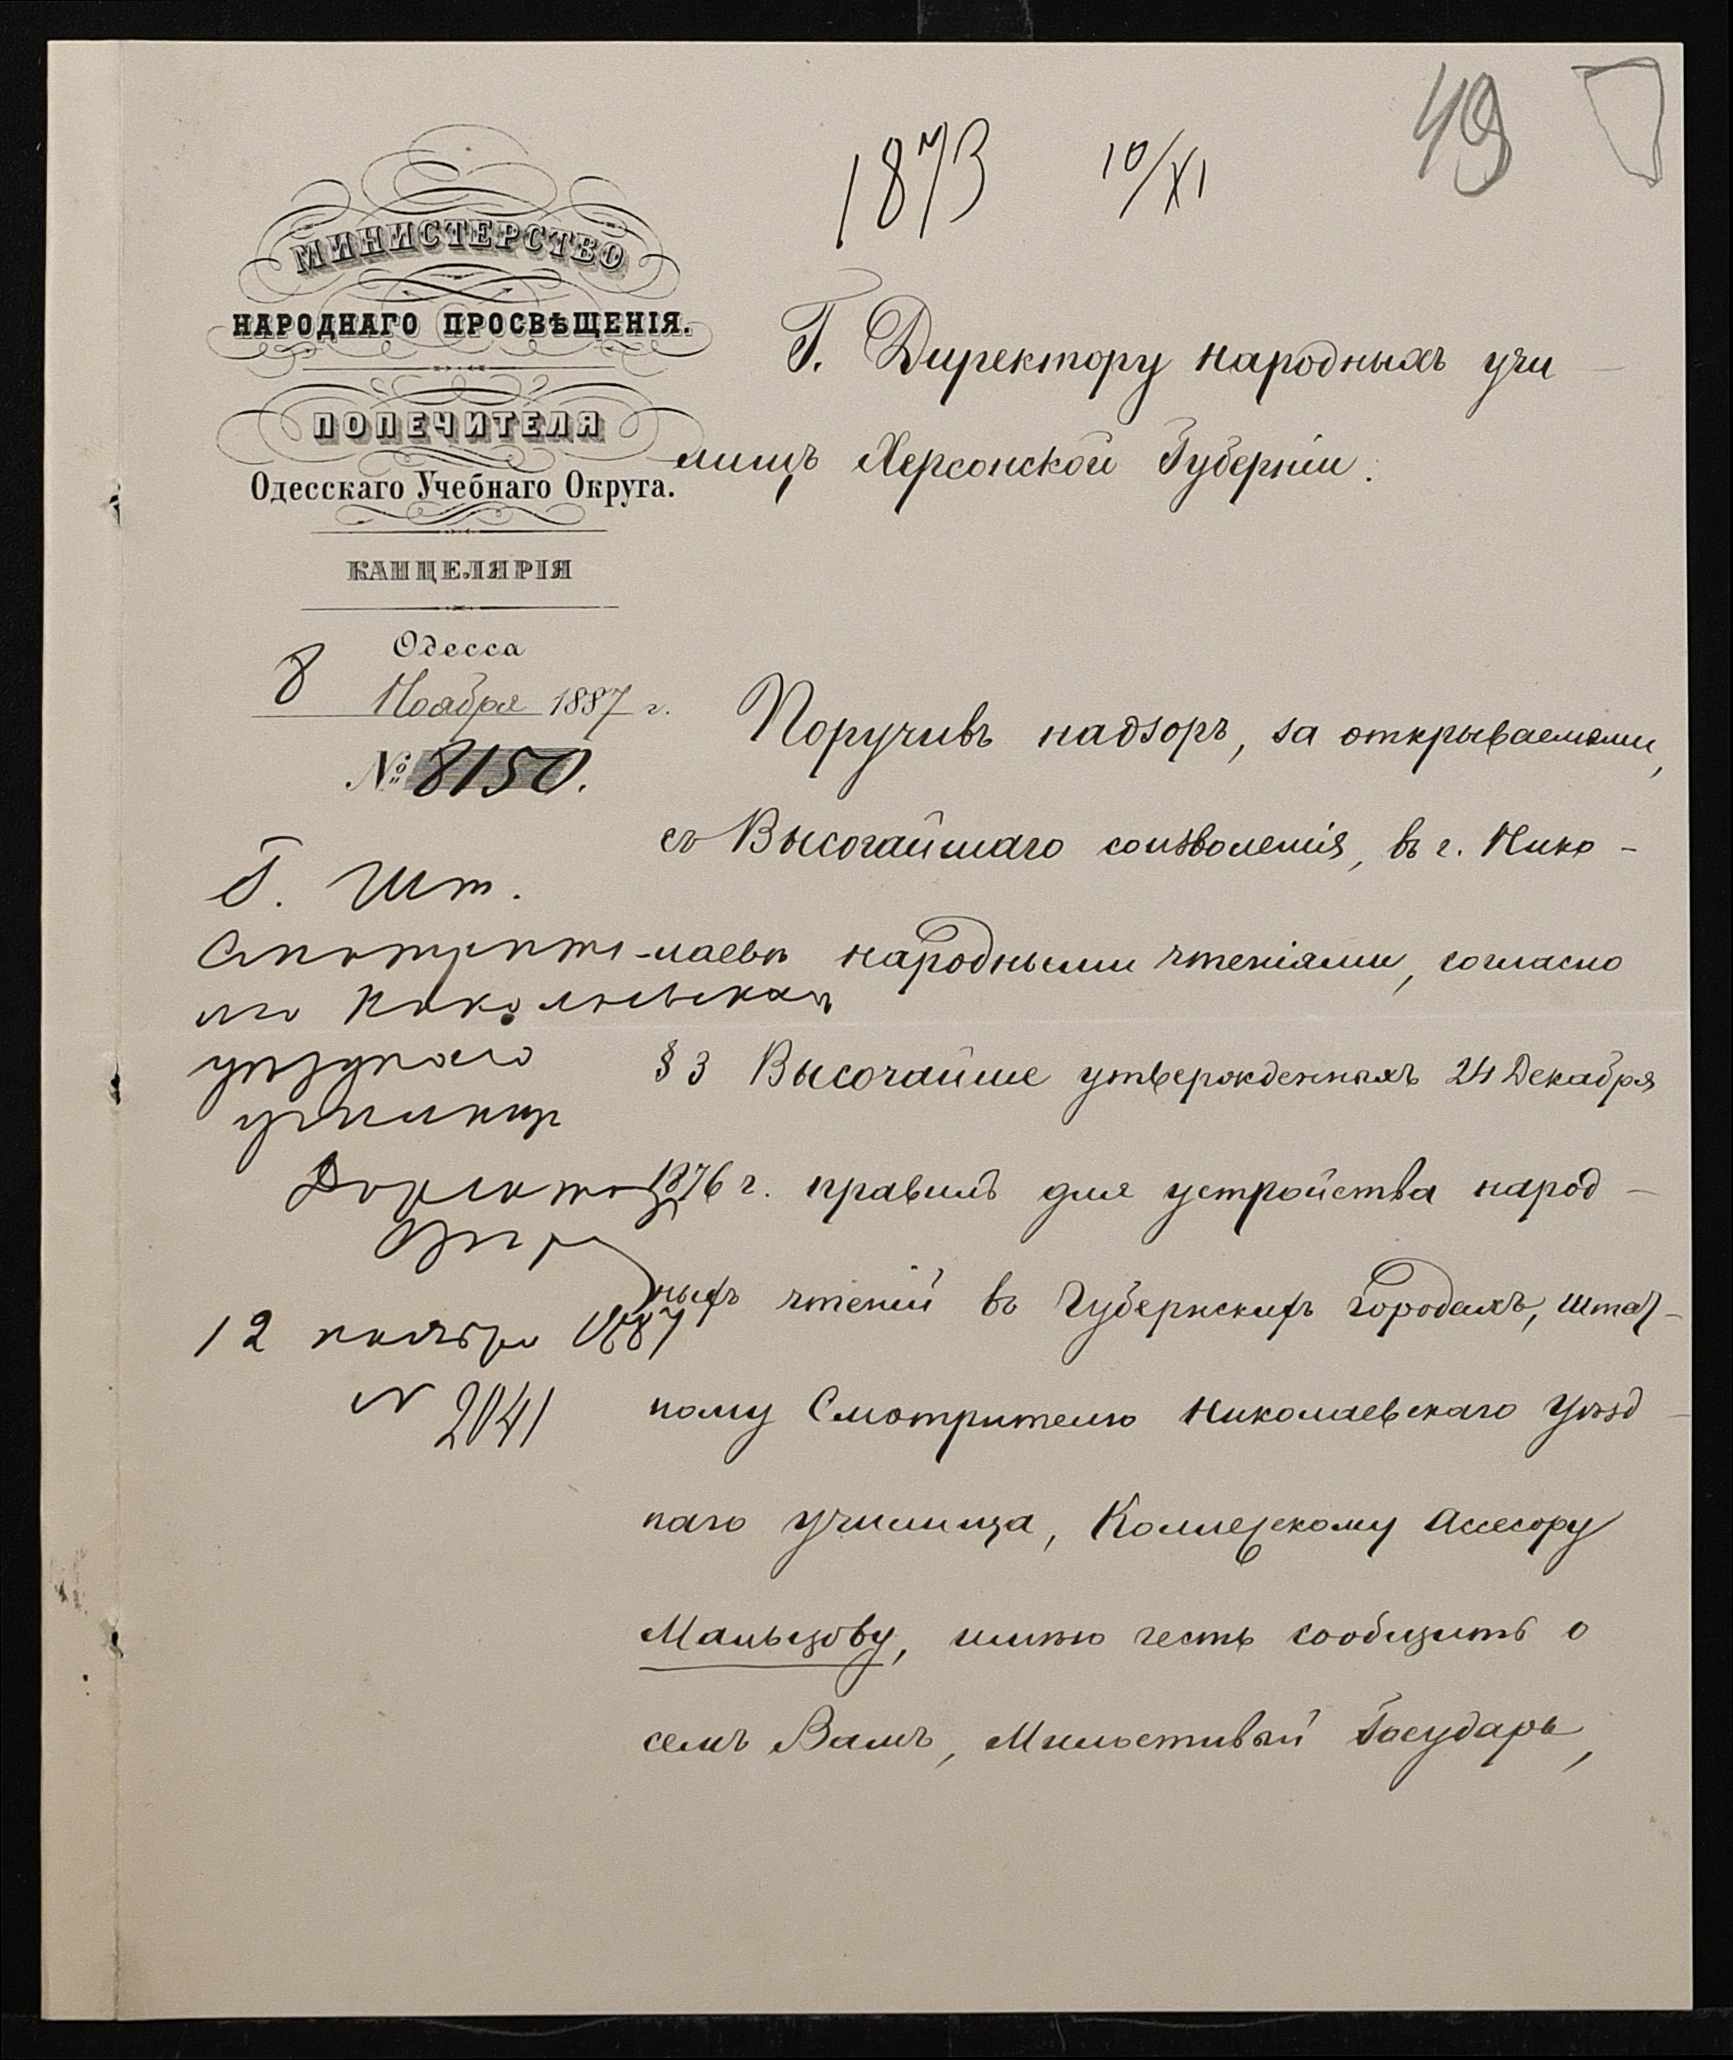 1873 10/XI
49
МИНИСТЕРСТВО
НАРОДНАГО ПРОСВѢЩЕНІЯ.
ПОПЕЧИТЕЛЯ
Одесскаго Учебнаго Округа.
КАНЦЕЛЯРІЯ
Одесса
8 Ноября 1887 г.
№ 8150.
Г. Директору народныхъ учи-
лищъ Херсонской Губерніи.
Поручивъ надзоръ, за открываемыми,
съ Высочайшаго соизволенія, въ г. Нико-
лаевѣ народными чтеніями, согласно
§ 3 Высочайше утвержденныхъ 24 Декабря
1876 г. правилъ для устройства народ-
ныхъ чтеній въ Губернскихъ Городахъ, Штат-
ному Смотрителю Николаевскаго Уѣзд-
наго училища, Коллежскому Ассесору
Мальцову, имѣю честь сообщить о
семъ Вамъ, Милостивый Государь,
Г. Шт.
Смотрите-
лю Николаевскаго
уѣзднаго
училища
12 ноября 1887
N 2041